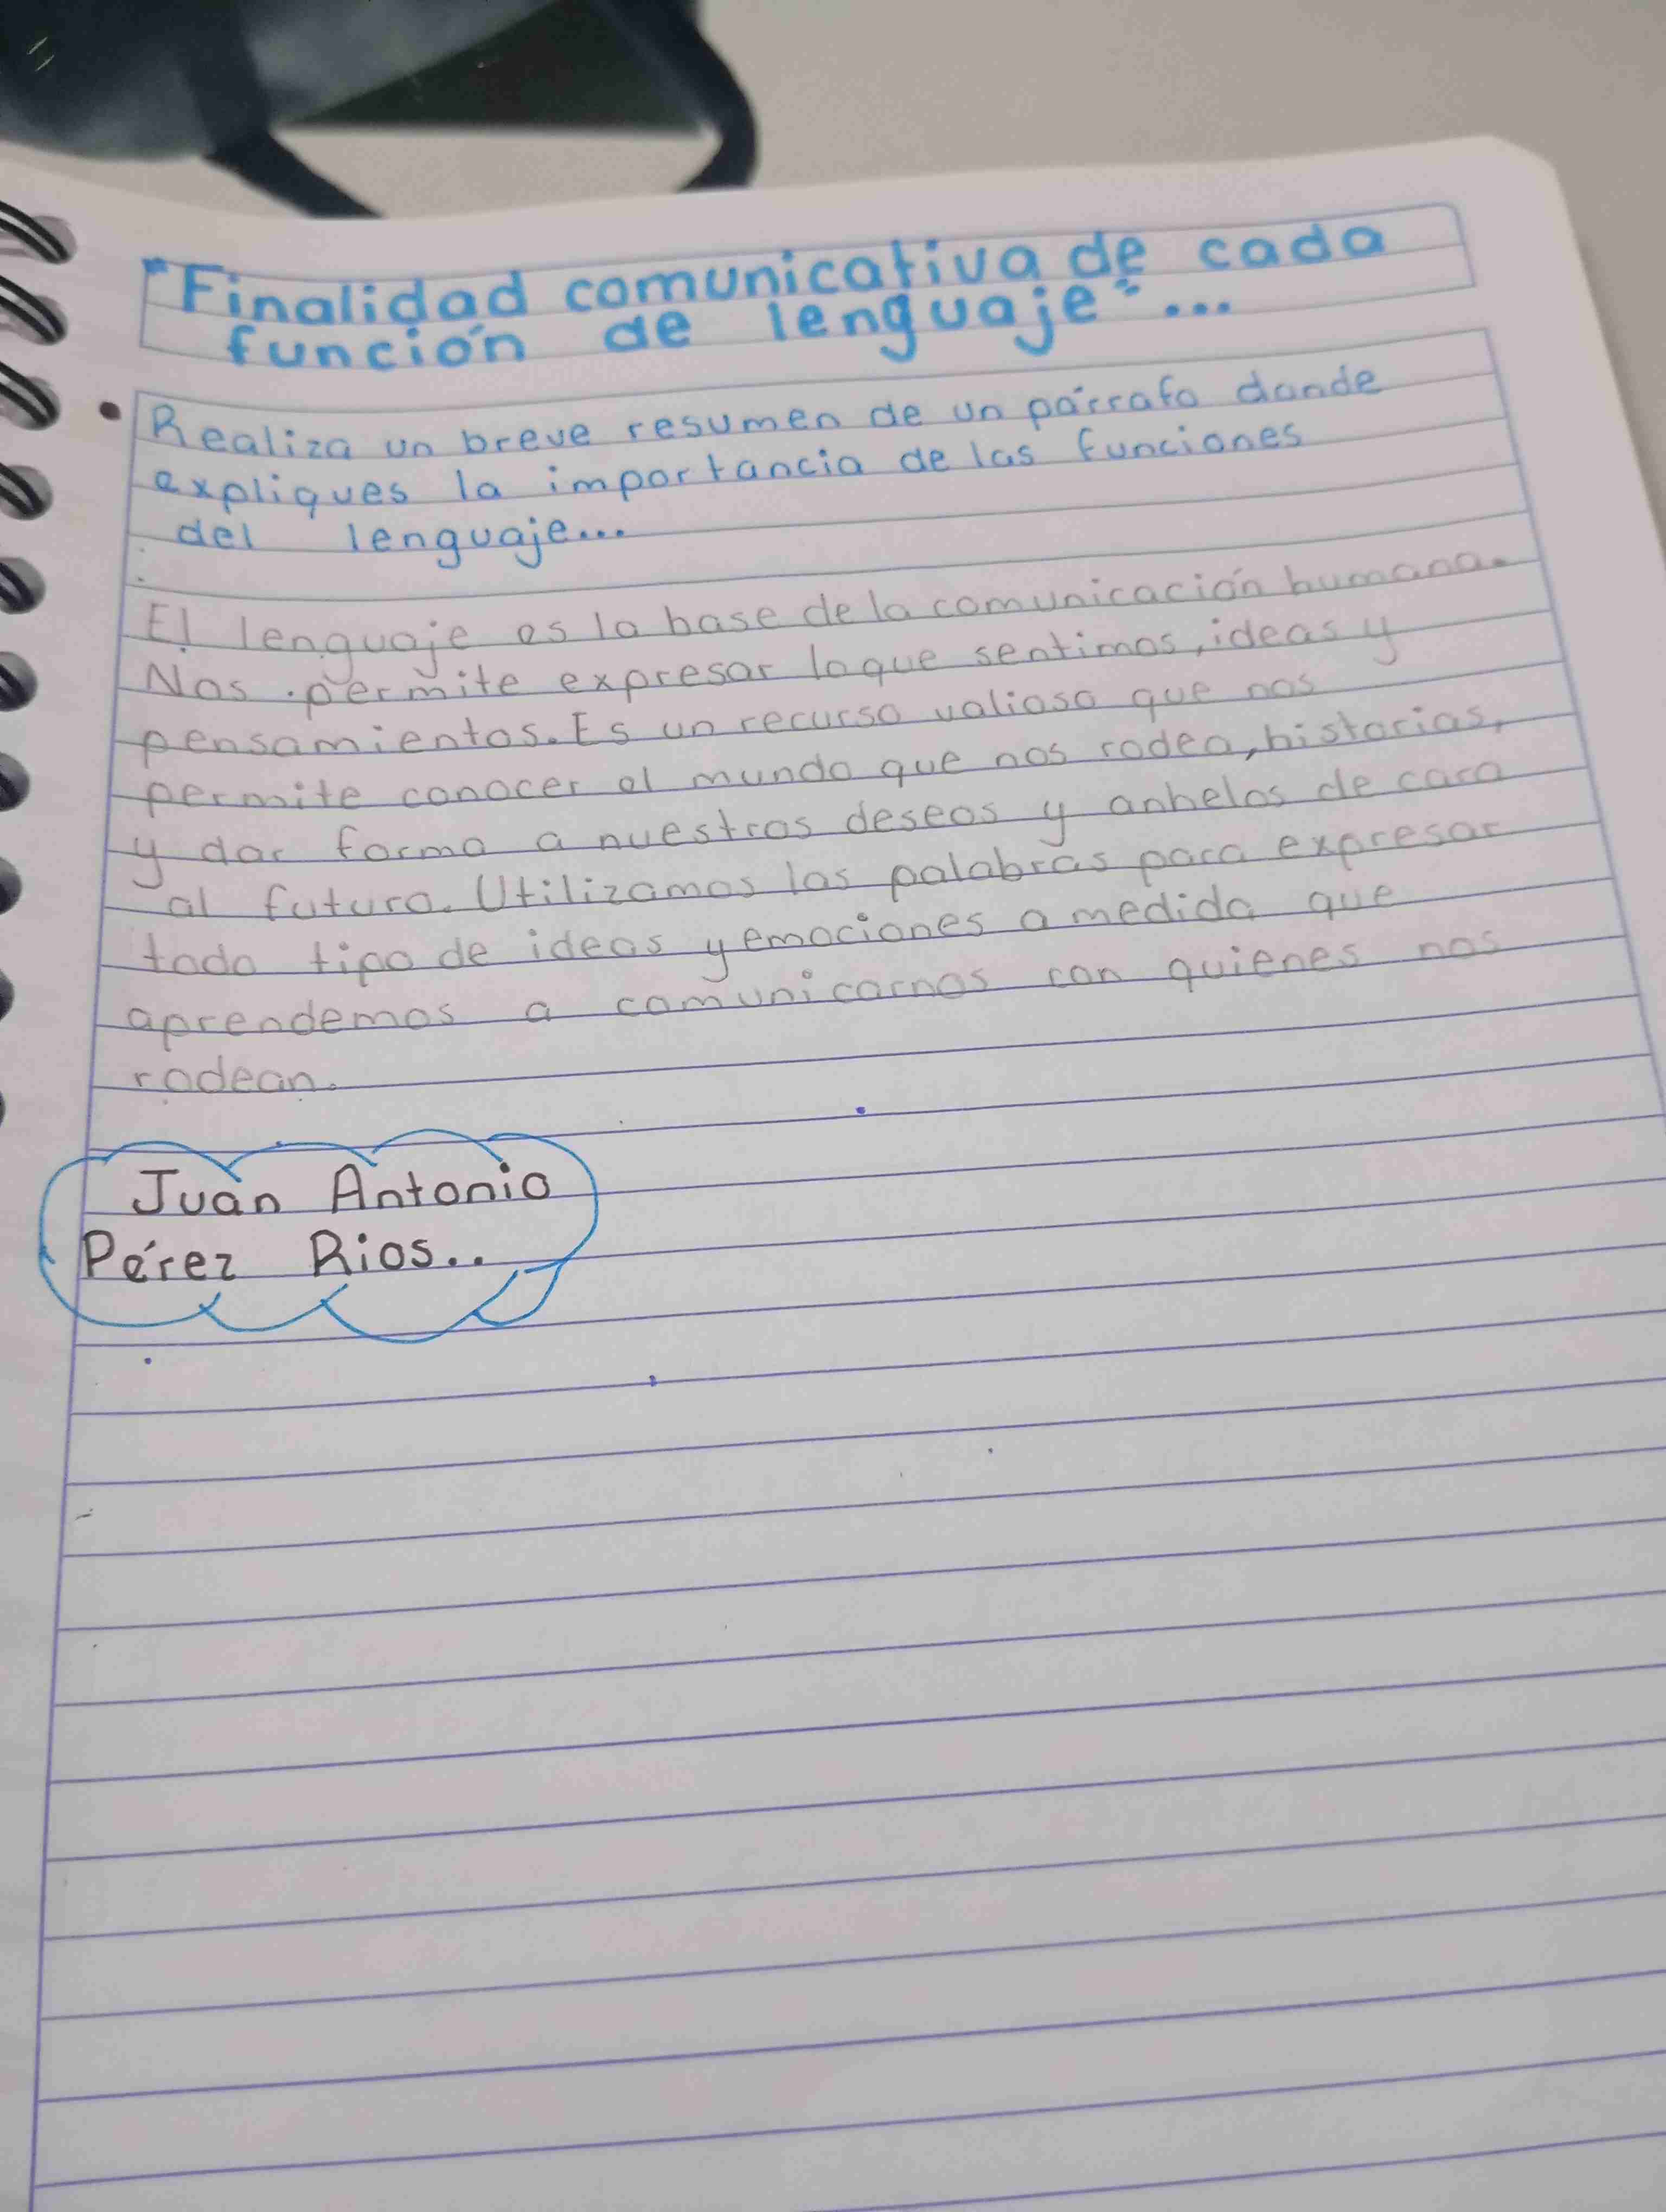 "Finalidad comunicativa de cada
función de lenguaje"...
• Realiza un breve resumen de un párrafo donde
expliques la importancia de las funciones
del lenguaje...
El lenguaje es la base de la comunicación humana.
Nos permite expresar lo que sentimos, ideas y
pensamientos. Es un recurso valioso que nos
permite conocer el mundo que nos rodea, historias,
y dar forma a nuestros deseos y anhelos de cara
al futuro. Utilizamos las palabras para expresar
todo tipo de ideas y emociones a medida que
aprendemos a comunicarnos con quienes nos
rodean.
Juan Antonio
Pérez Rios..